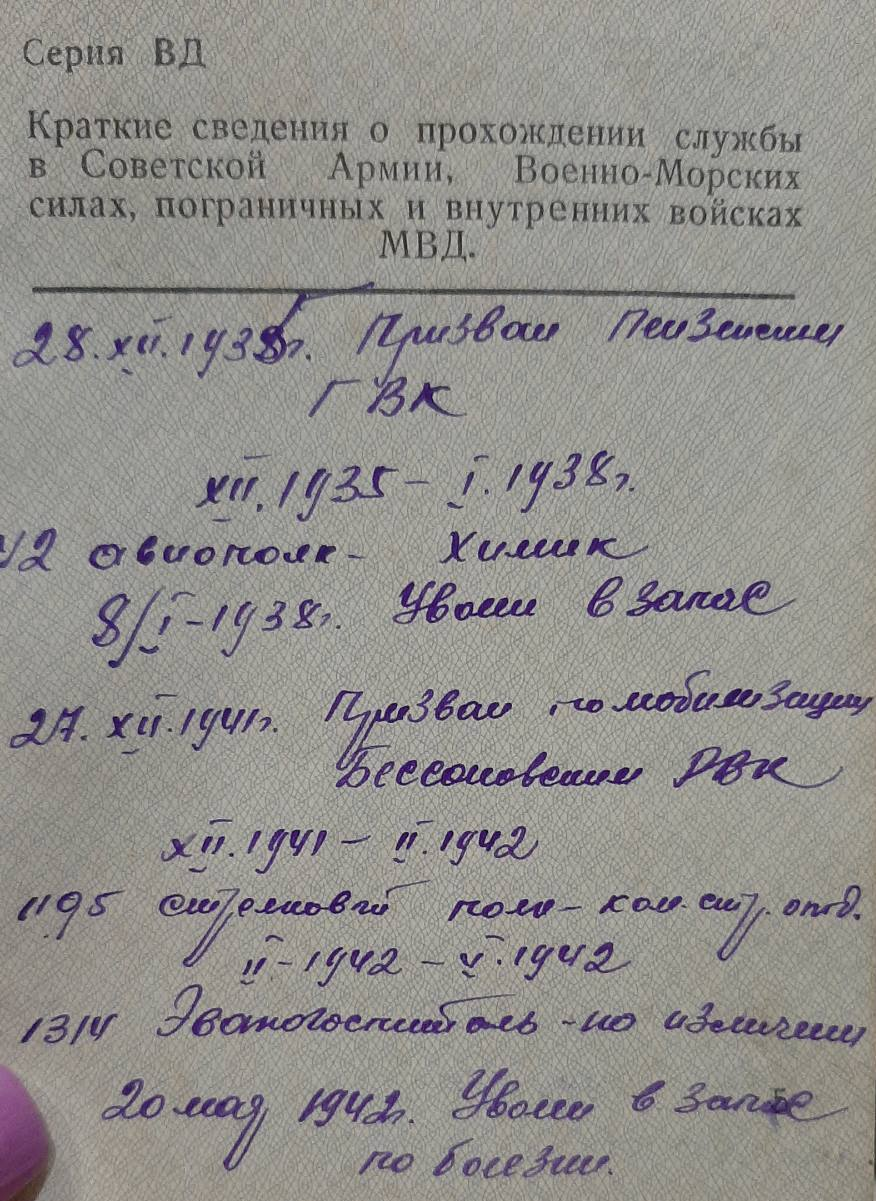 Серия ВД
Краткие сведения о прохождении службы
в Советской Армии, Военно-Морских
силах, пограничных и внутренних войсках
МВД.
28.XII.1935г. Призван Пензенским
ГВК
XII.1935 – I.1938г.
авиополк – Химик
8/I – 1938г. Уволен в запас
27.XII.1941г. Призван по мобилизации
Бессоновским РВК
XII.1941 – II.1942
1195 стрелковый полк – ком. стр. отд.
II – 1942 – V.1942
1314 Эвакогоспиталь – по излечении
20 мая 1942г. Уволен в запас
по болезни.